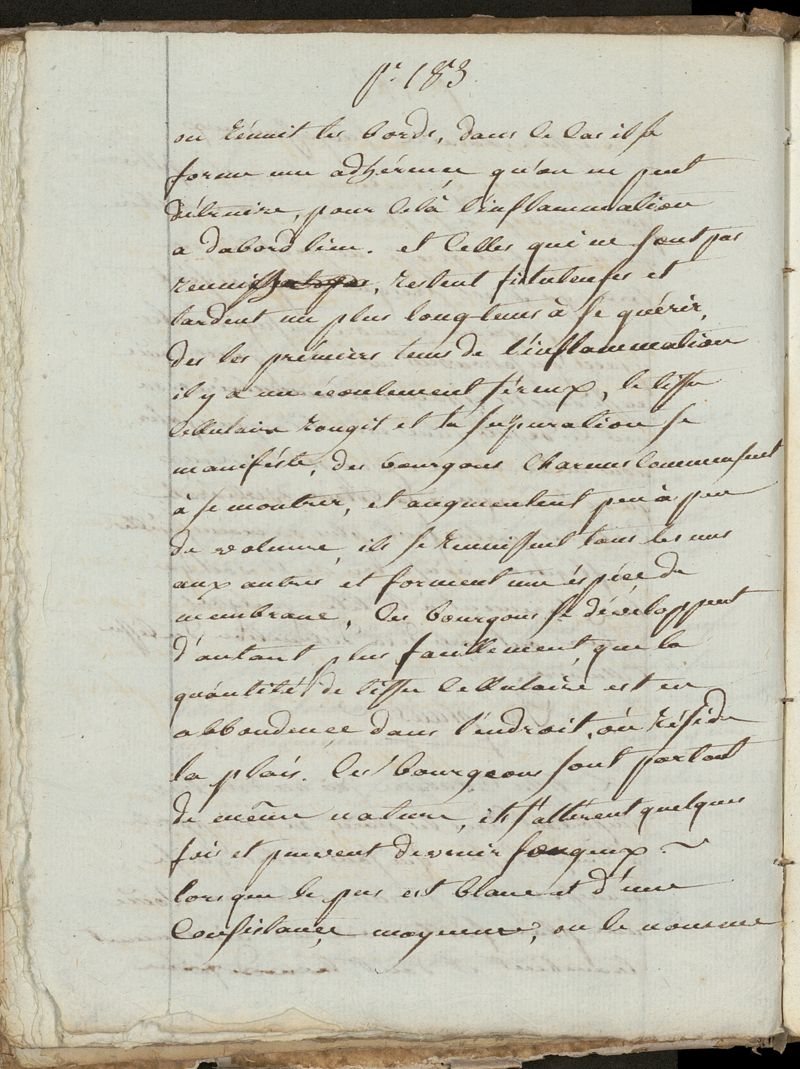 pe 183
on réunit les bords, dans ce cas il se
forme une adhérence qu'on ne peut
détruire, pour celà l'inflammation
a dabord lieu. et celles qui ne sont pas
reunis, restent fistuleuses et
tardent un plus longtems à se guérir,
des les prémiers tems de l'inflammation
il y a un écoulement séreux, le tissu
cellulaire rougit et la supuration se
manifeste, des bourgons charnus commensent
à se montrer, et augmentent peu à peu
de volume, ils se reunissent tous les uns
aux autres et forment une éspéce de
membrane, ces bourgons se développent
d'autant plus facillement que la
quantité de tissu cellulaire est en
abbondence dans l'endroit, où réside
la plais. Ces bourgeons sont partout
de même nature, ils s'altérent quelques
fois et peuvent devenir fongeux. ~
lorsque le pus est blanc et d'une
consistance moyenne, on le nomme